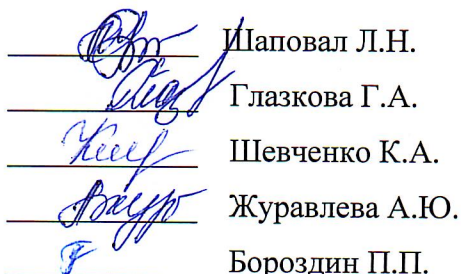 Шаповал Л.Н.
Глазкова Г.А.
Шевченко К.А.
Журавлева А.Ю.
Бороздин П.П.